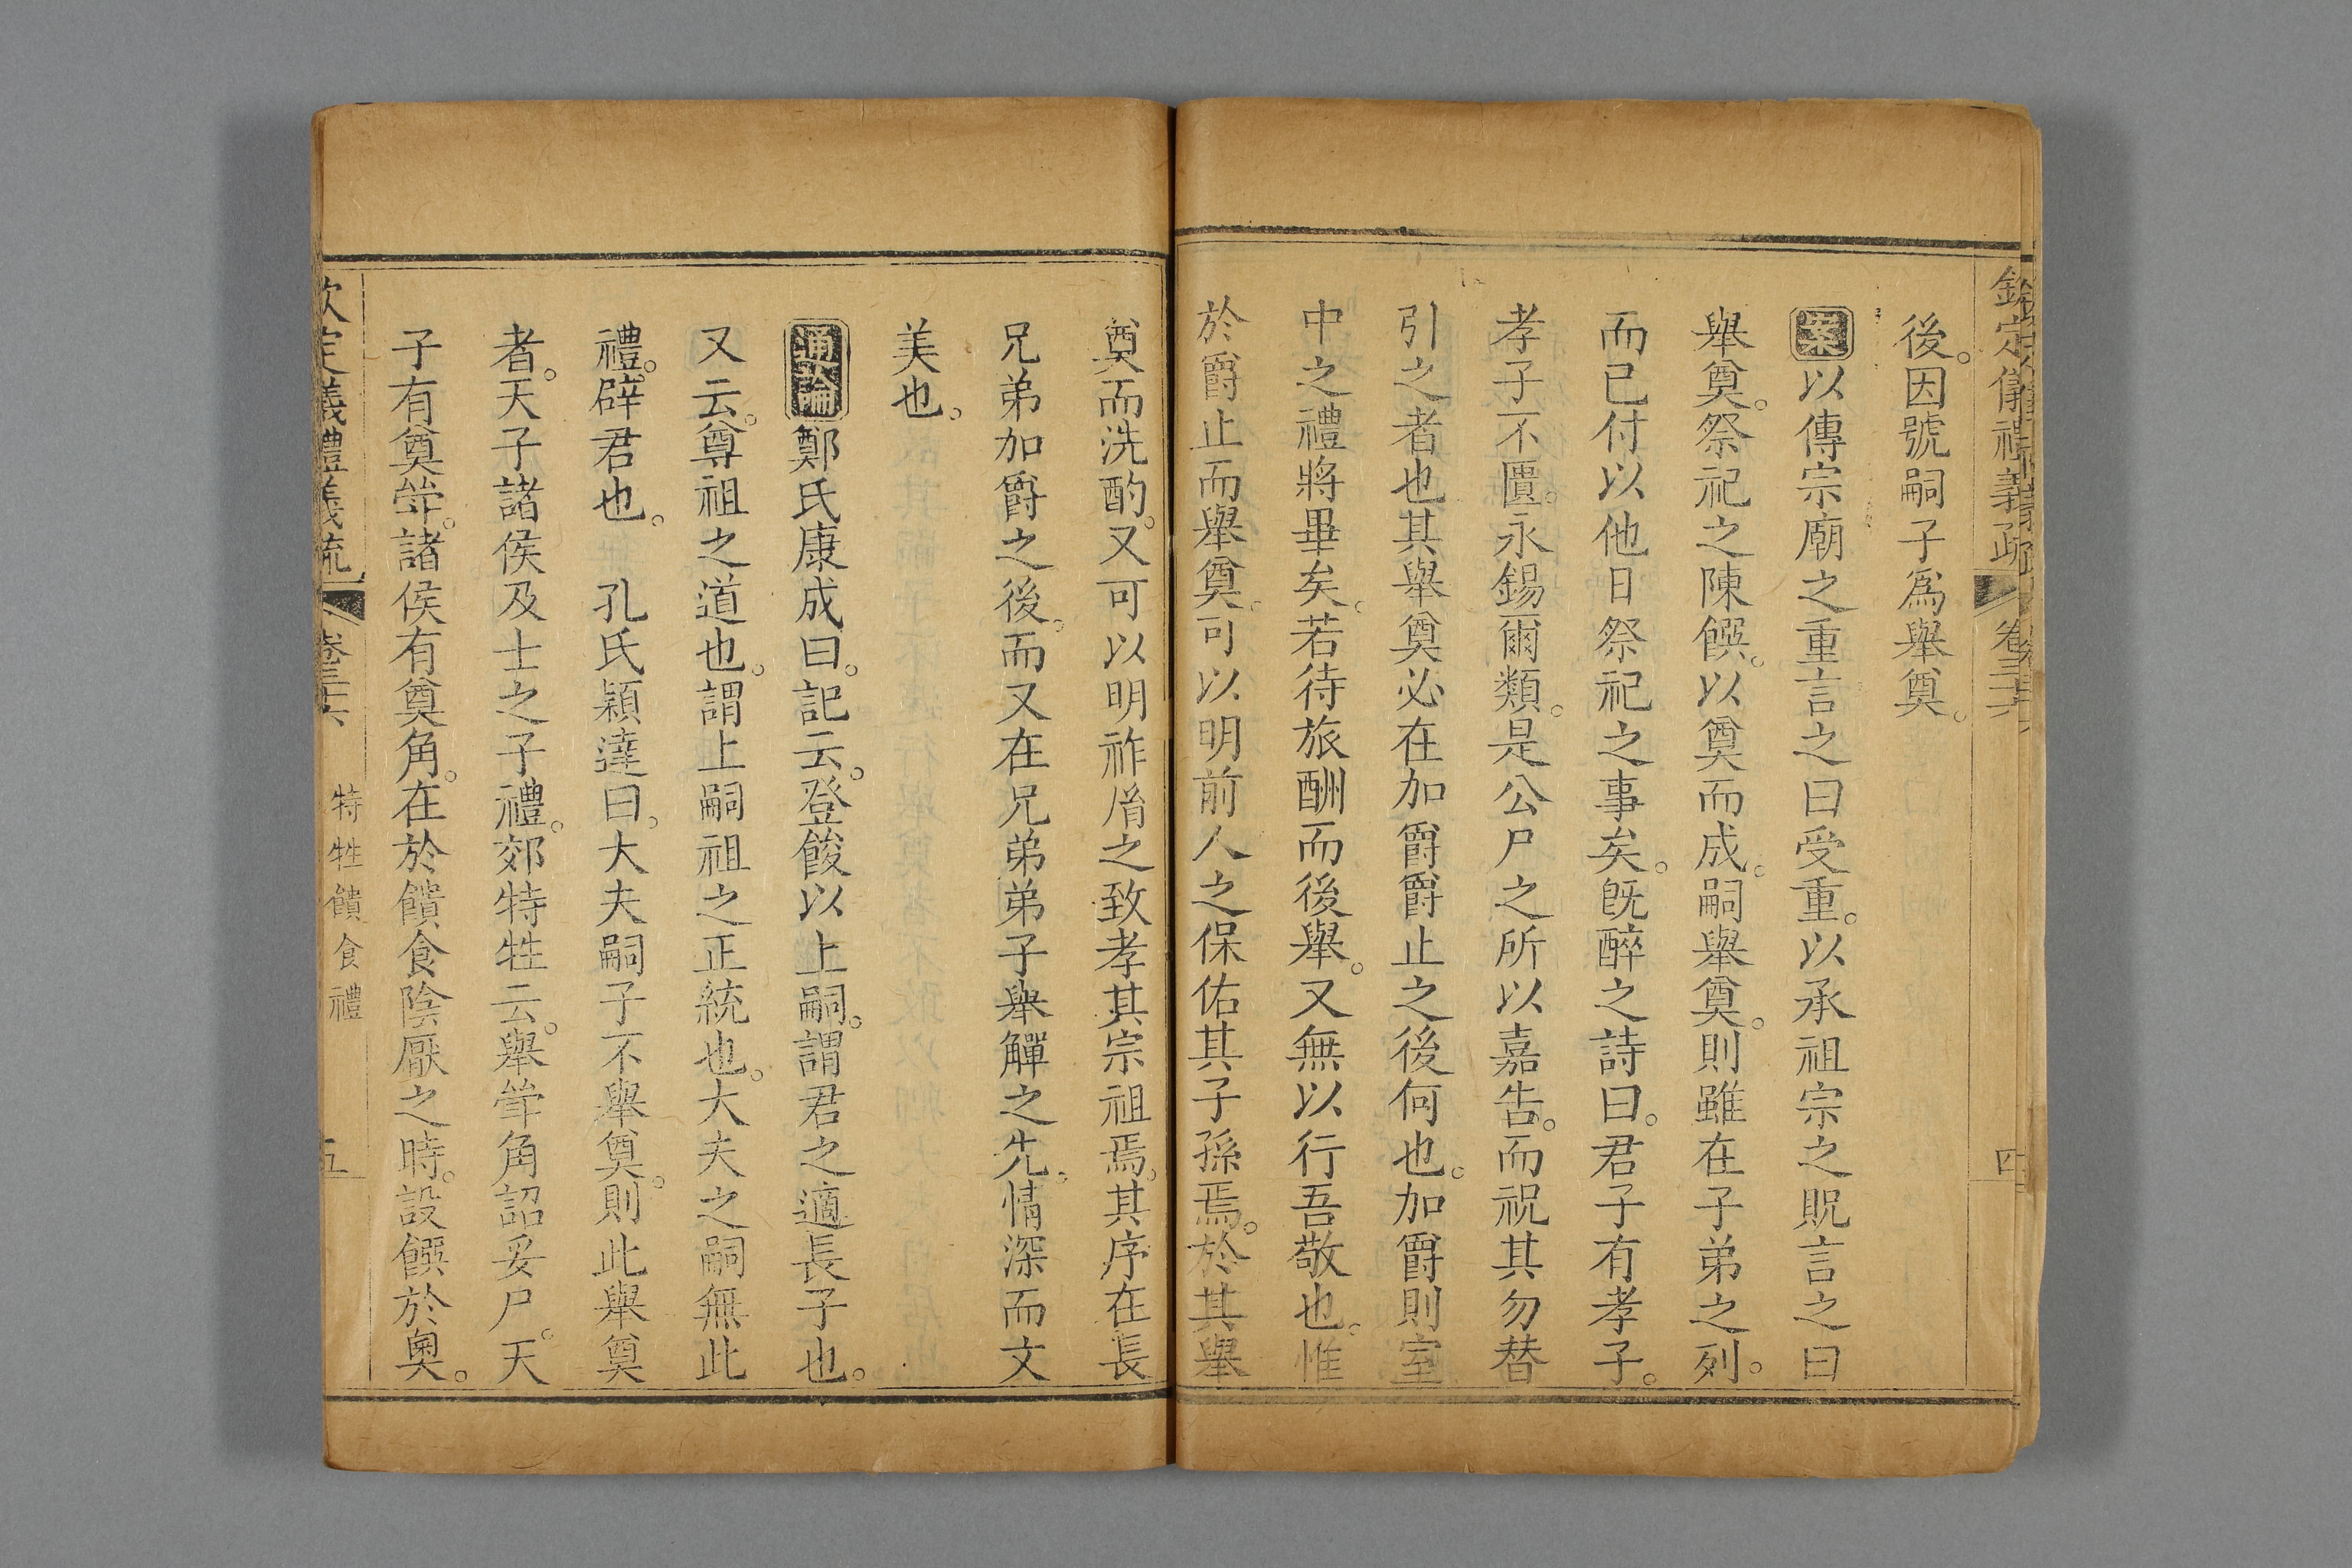 欽定儀禮義疏 卷三十六 四
後。因號嗣子爲舉奠。
案以傳宗廟之重言之曰受重。以承祖宗之貺言之曰
舉奠。祭祀之陳饌。以奠而成。嗣舉奠。則雖在子弟之列。
而已付以他日祭祀之事矣。旣醉之詩曰。君子有孝子。
孝子不匱。永錫爾類。是公尸之所以嘉告。而祝其勿替
引之者也其舉奠必在加爵爵止之後何也。加爵則室
中之禮將畢矣。若待旅酬而後舉。又無以行吾敬也。惟
於爵止而舉奠。可以明前人之保佑其子孫焉。於其舉
奠而洗酌。又可以明祚胤之致孝其宗祖焉。其序在長
兄弟加爵之後。而又在兄弟弟子舉觶之先。情深而文
美也。
通論鄭氏康成曰。記云。登餕以上嗣。謂君之適長子也。
又云。尊祖之道也。謂上嗣祖之正統也。大夫之嗣無此
禮。辟君也。 孔氏穎達曰。大夫嗣子不舉奠。則此舉奠
者。天子諸侯及士之子禮。郊特牲云。舉斝角詔妥尸。天
子有奠斝。諸侯有奠角。在於饋食陰厭之時。設饌於奧。
欽定儀禮義疏 卷三十六 特牲饋食禮 五